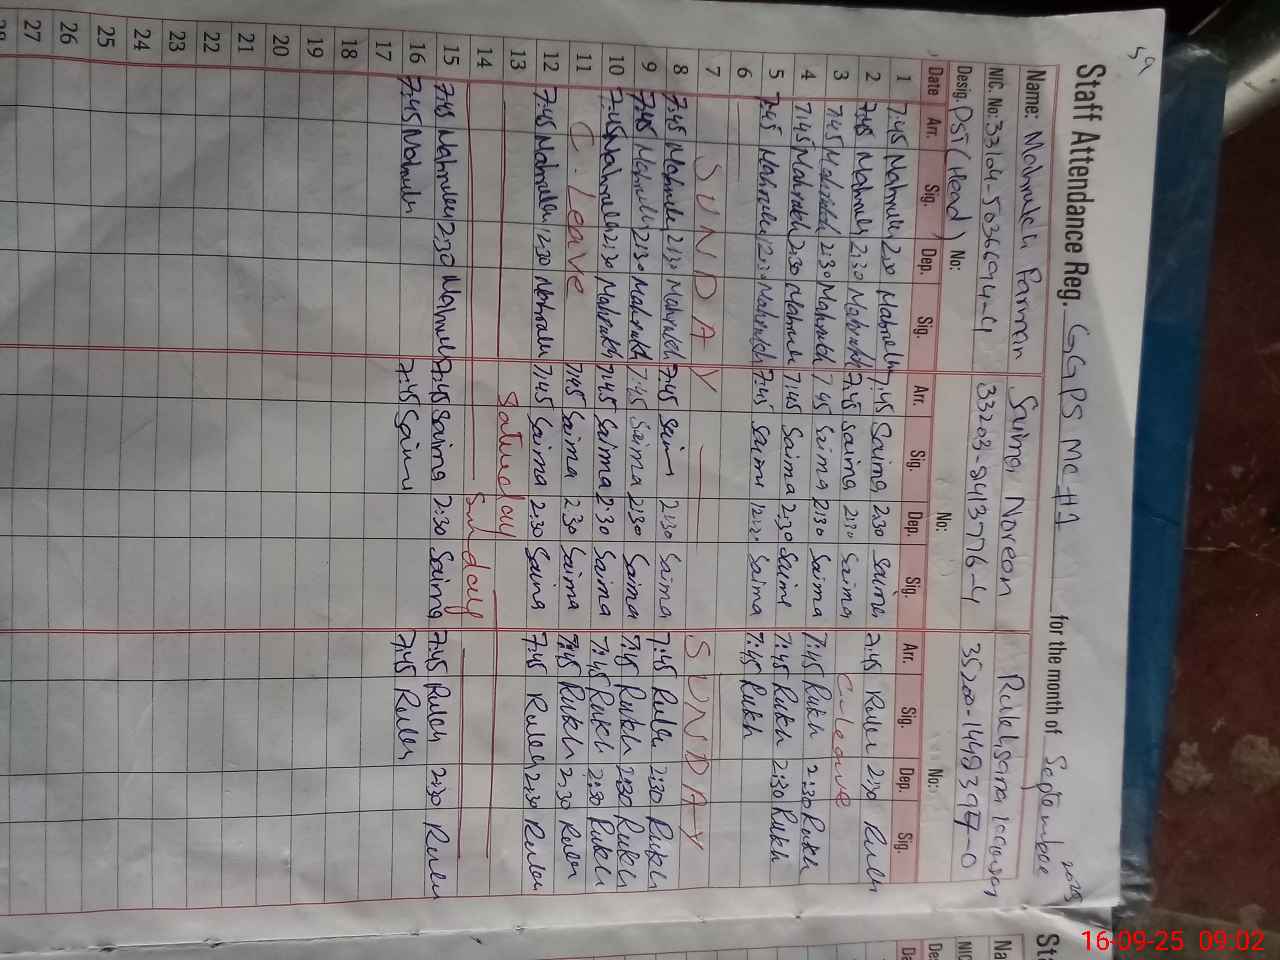 59
Staff Attendance Reg. GGPS MC #1 for the month of September 2025
Name: Mahrukh Farman Saima Noreen Rukhsana Kausar
NIC. No: 33104-5036694-4 33203-8413776-4 35200-1448397-0
Desig. PST (Head) No: No: No:
Date Arr. Sig. Dep. Sig. Arr. Sig. Dep. Sig. Arr. Sig. Dep. Sig.
1 7:45 Mahrukh 2:30 Mahrukh 7:45 Saima 2:30 Saima 7:45 Rukh 2:30 Rukh
2 7:45 Mahrukh 2:30 Mahrukh 7:45 Saima 2:30 Saima C. Leave
3 7:45 Mahrukh 2:30 Mahrukh 7:45 Saima 2:30 Saima 7:45 Rukh 2:30 Rukh
4 7:45 Mahrukh 2:30 Mahrukh 7:45 Saima 2:30 Saima 7:45 Rukh 2:30 Rukh
5 7:45 Mahrukh 12:30 Mahrukh 7:45 Saima 12:30 Saima 7:45 Rukh
6
7 SUNDAY SUNDAY
8 7:45 Mahrukh 2:30 Mahrukh 7:45 Saima 2:30 Saima 7:45 Rukh 2:30 Rukh
9 7:45 Mahrukh 2:30 Mahrukh 7:45 Saima 2:30 Saima 7:45 Rukh 2:30 Rukh
10 7:45 Mahrukh 2:30 Mahrukh 7:45 Saima 2:30 Saima 7:45 Rukh 2:30 Rukh
11 C. Leave 7:45 Saima 2:30 Saima 7:45 Rukh 2:30 Rukh
12 7:45 Mahrukh 12:30 Mahrukh 7:45 Saima 2:30 Saima 7:45 Rukh 2:30 Rukh
13 Saturday
14 Sunday
15 7:45 Mahrukh 2:30 Mahrukh 7:45 Saima 2:30 Saima 7:45 Rukh 2:30 Rukh
16 7:45 Mahrukh 7:45 Saima 7:45 Rukh
17
18
19
20
21
22
23
24
25
26
27
28
Sta
Na
NIC
Des
Da
16-09-25 09:02